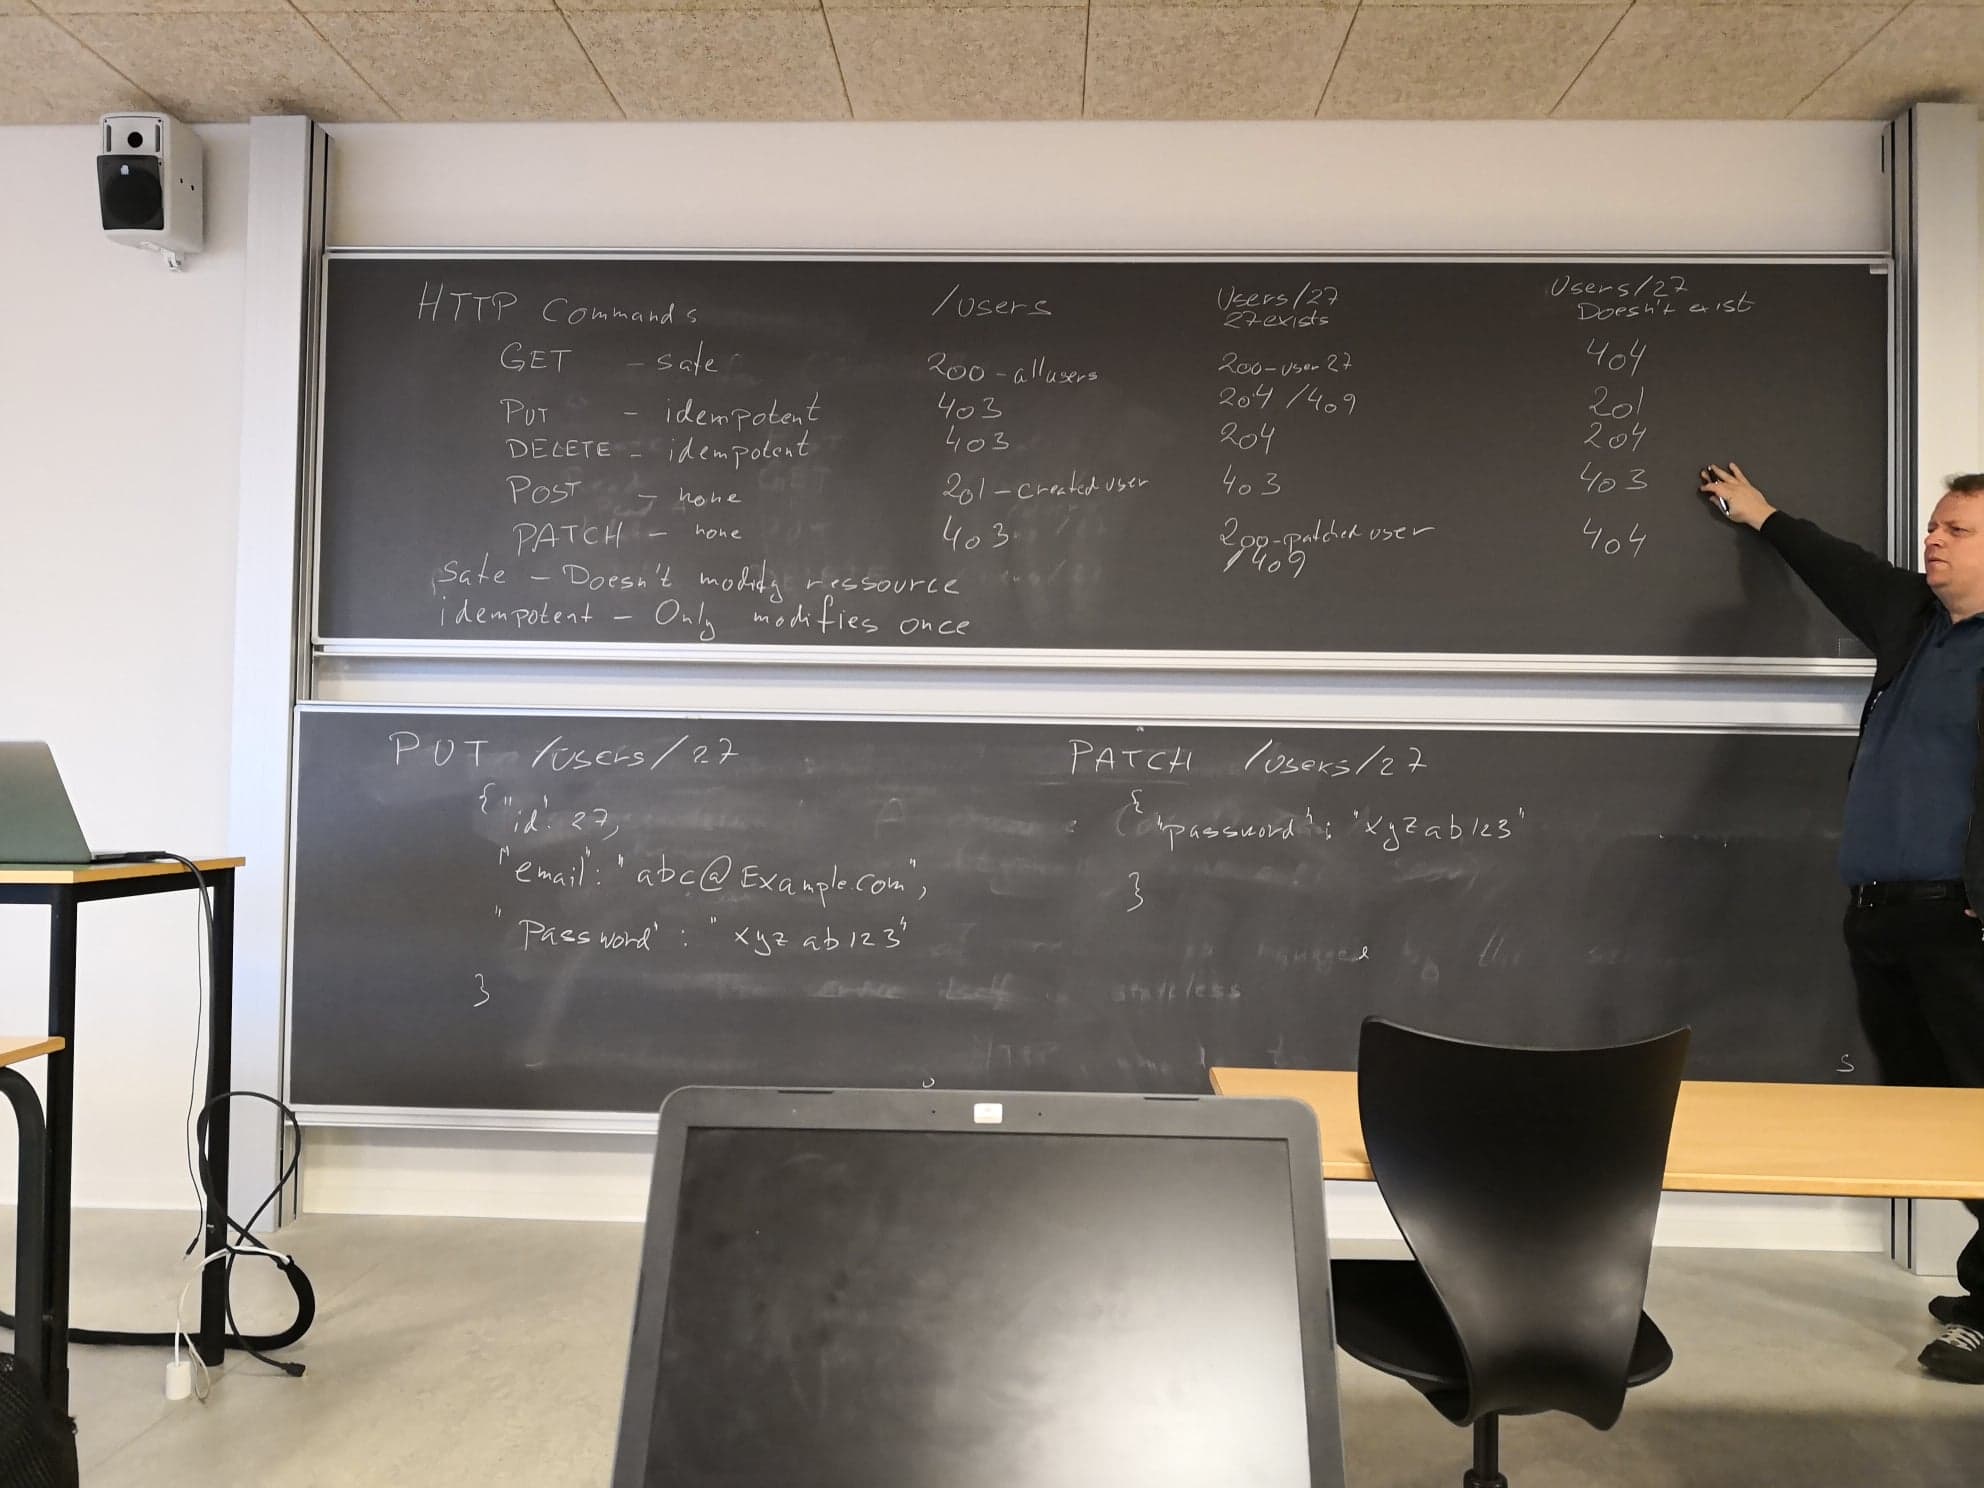 HTTP Commands /Users Users/27 Users/27
27 exists Doesn't exist
GET - safe 200 - all users 200 - user 27 404
PUT - idempotent 403 204 / 409 201
DELETE - idempotent 403 204 204
POST - none 201 - created user 403 403
PATCH - none 403 200 - patched user 404
/ 409
Safe - Doesn't modify ressource
idempotent - Only modifies once
PUT /users/27
{
"id": 27,
"email": "abc@Example.com",
"Password": "xyzab123"
}
PATCH /users/27
{
"password": "xyzab123"
}
managed by the
itself stateless
HTTP
S